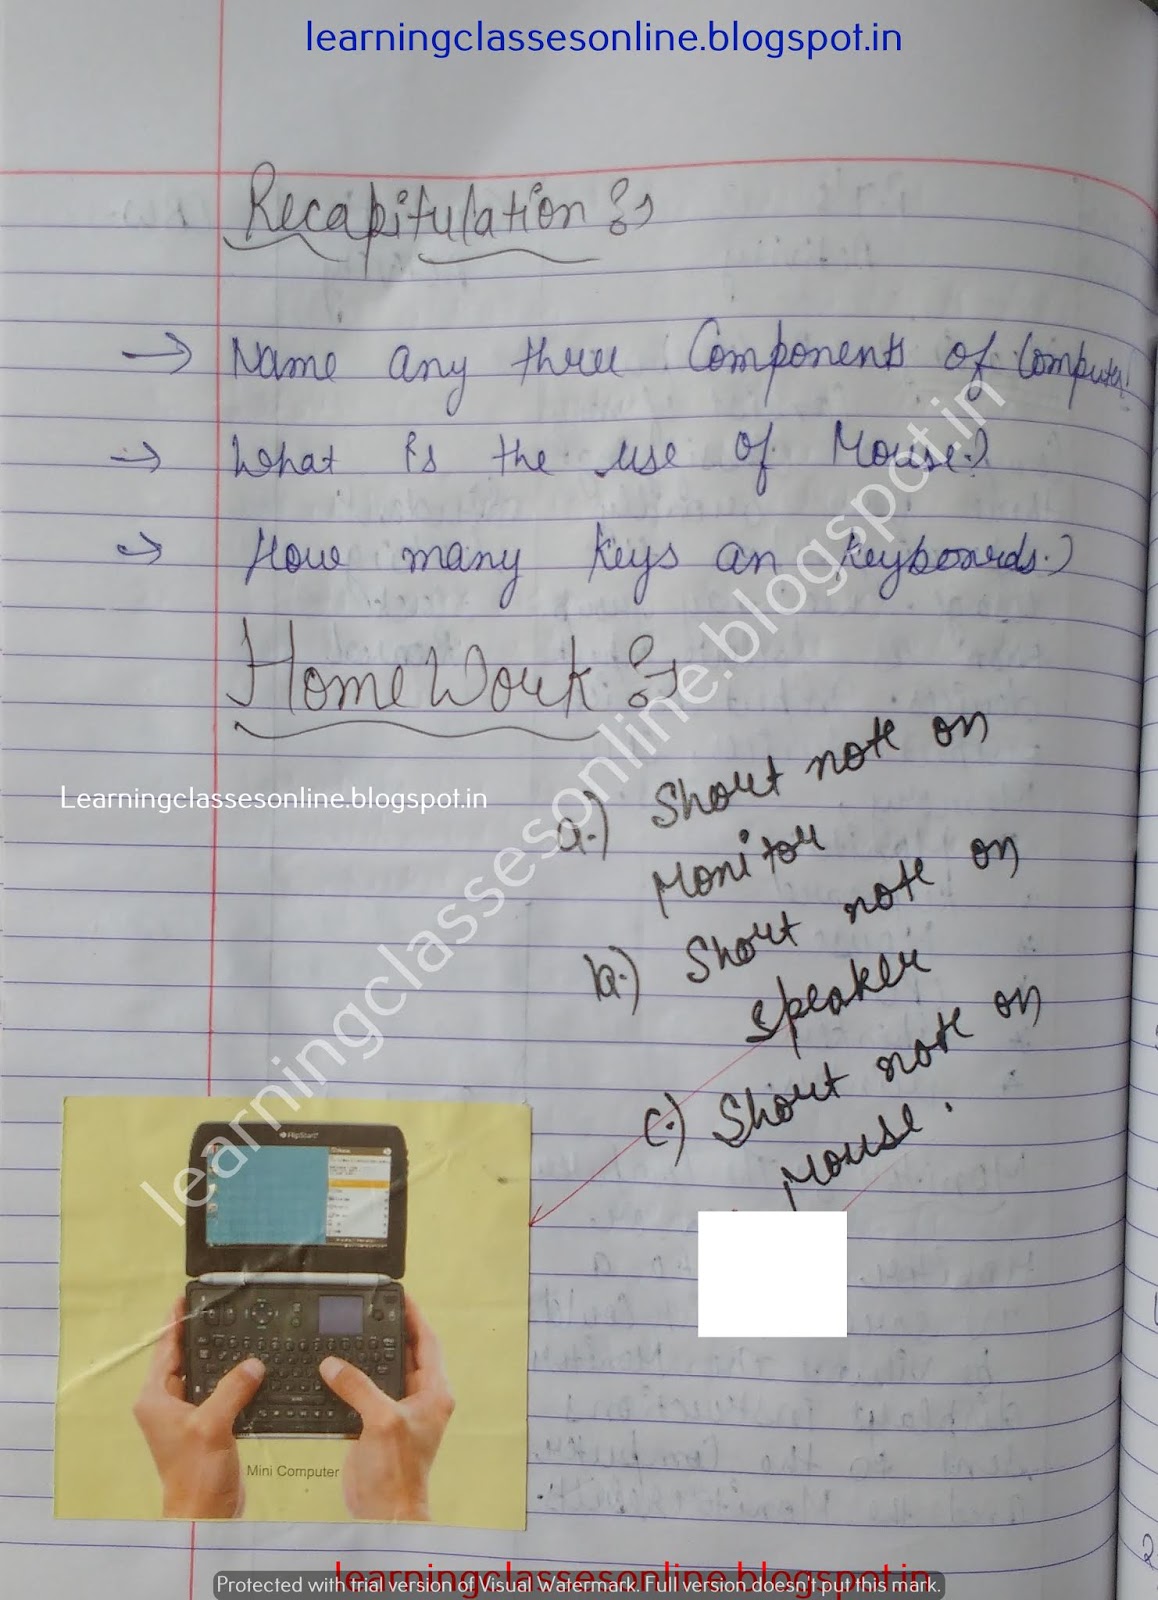 learningclassesonline.blogspot.in
Recapitulation :-
→ Name any three Components of Computer.
→ What is the use of Mouse?
→ How many keys an keyboards?
HomeWork :-
Learningclassesonline.blogspot.in
a.) Short note on
Monitor
b.) Short note on
Speaker
c.) Short note on
Mouse.
learningclassesonline.blogspot.in
FlipStart
Mini Computer
learningclassesonline.blogspot.in
Protected with trial version of Visual Watermark. Full version doesn't put this mark.